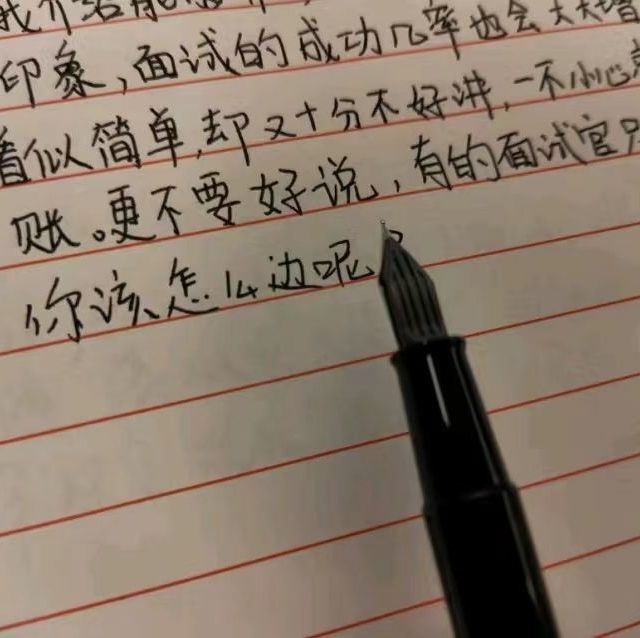 我介绍能
印象，面试的成功几率也会大大增
看似简单，却又十分不好讲，一不小心
账。更不要好说，有的面试官只
你该怎么边呢？